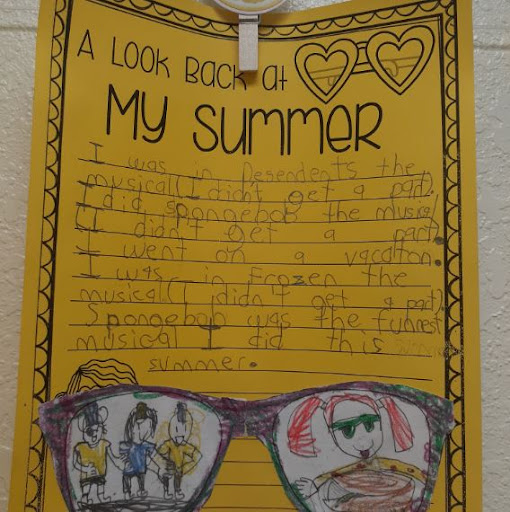 A LOOK BACK at
MY SUMMER
I was in Desendents the
musical (I didn't get a part.
I did spongebob the musical
(I didn't get a part.
I went on a vacation.
I was in Frozen the
musical.(I didn't get a part).
Spongebob was the funnest
musical I did this
summer.